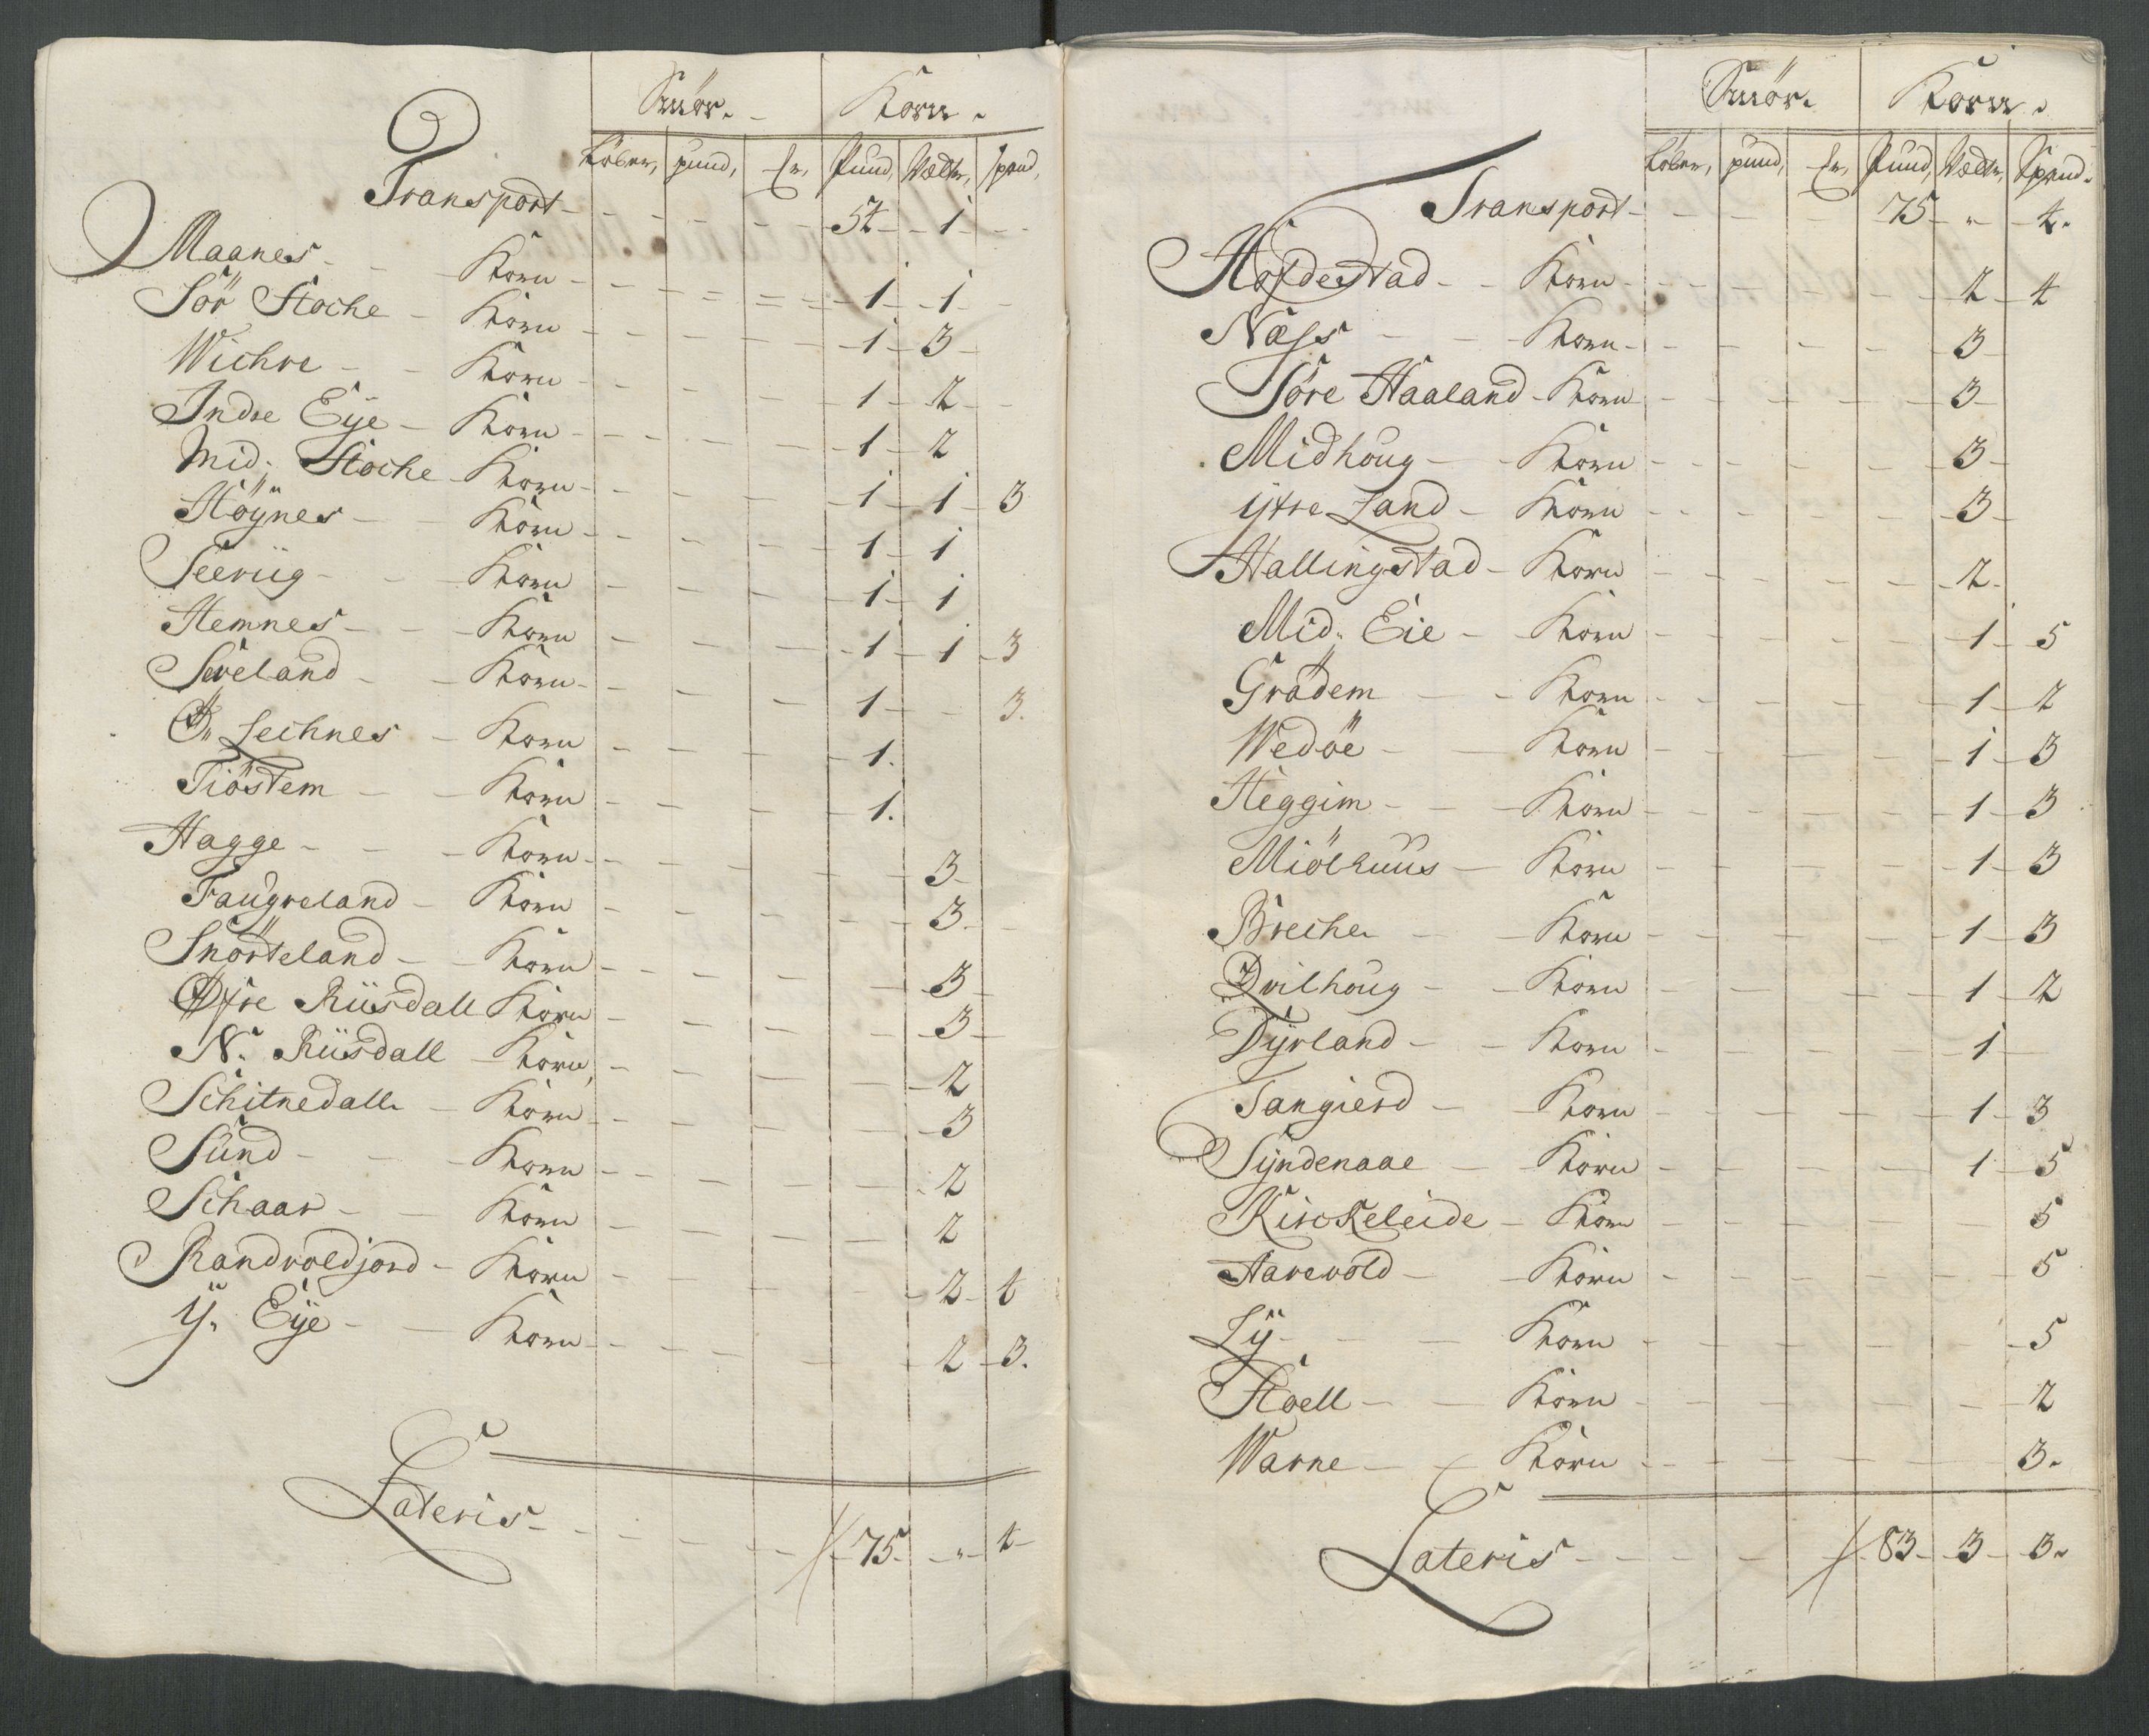 Smör. Korn.
Löber, pund, Pund, Vetter, Spand,
Transport 54 1
Maanes Korn 1 1
Sör Stoche Korn 1 3
Wichre Korn 1 2
Indre Eÿe Korn 1 2
Mid: Stoche Korn 1 1 3
Höÿnes Korn 1 1
Seeriig Korn 1 1
Hemnes Korn 1 1 3
Søreland Korn 1 3.
Ø. Lechnes Korn 1.
Tiöstem Korn 1.
Hagge Korn 3
Faugreland Korn 3
Snörteland Korn 3
Øfre Riisdall Korn 3
N. Riisdall Korn 2
Schitnedall Korn 3
Sund Korn 2
Schaar Korn 2
Randvoldjord Korn 2 4
Ÿ. Eÿe Korn 2 3.
Lateris 75 " 4
Smör. Korn.
Löber, pund, Pund, Vetter, Spand.
Transport 75 " 4.
Hofdestad Korn 2 4
Næss Korn 3
Söre Haaland Korn 3
Midhoug Korn 3
Ÿtre Land Korn 3
Hallingstad Korn 2
Mid: Eie Korn 1 5
Grödem Korn 1 2
Wedöe Korn 1 3
Heggim Korn 1 3
Miölhuus Korn 1 3
Breche Korn 1 3
Qvilhoug Korn 1 2
Dÿrland Korn 1
Tangierd Korn 1 3
Sÿndenaae Korn 1 5
Kirckeleide Korn 5
Harevold Korn 5
Lÿ Korn 5
Stoell Korn 2
Warne Korn 3.
Lateris 83 3 3.